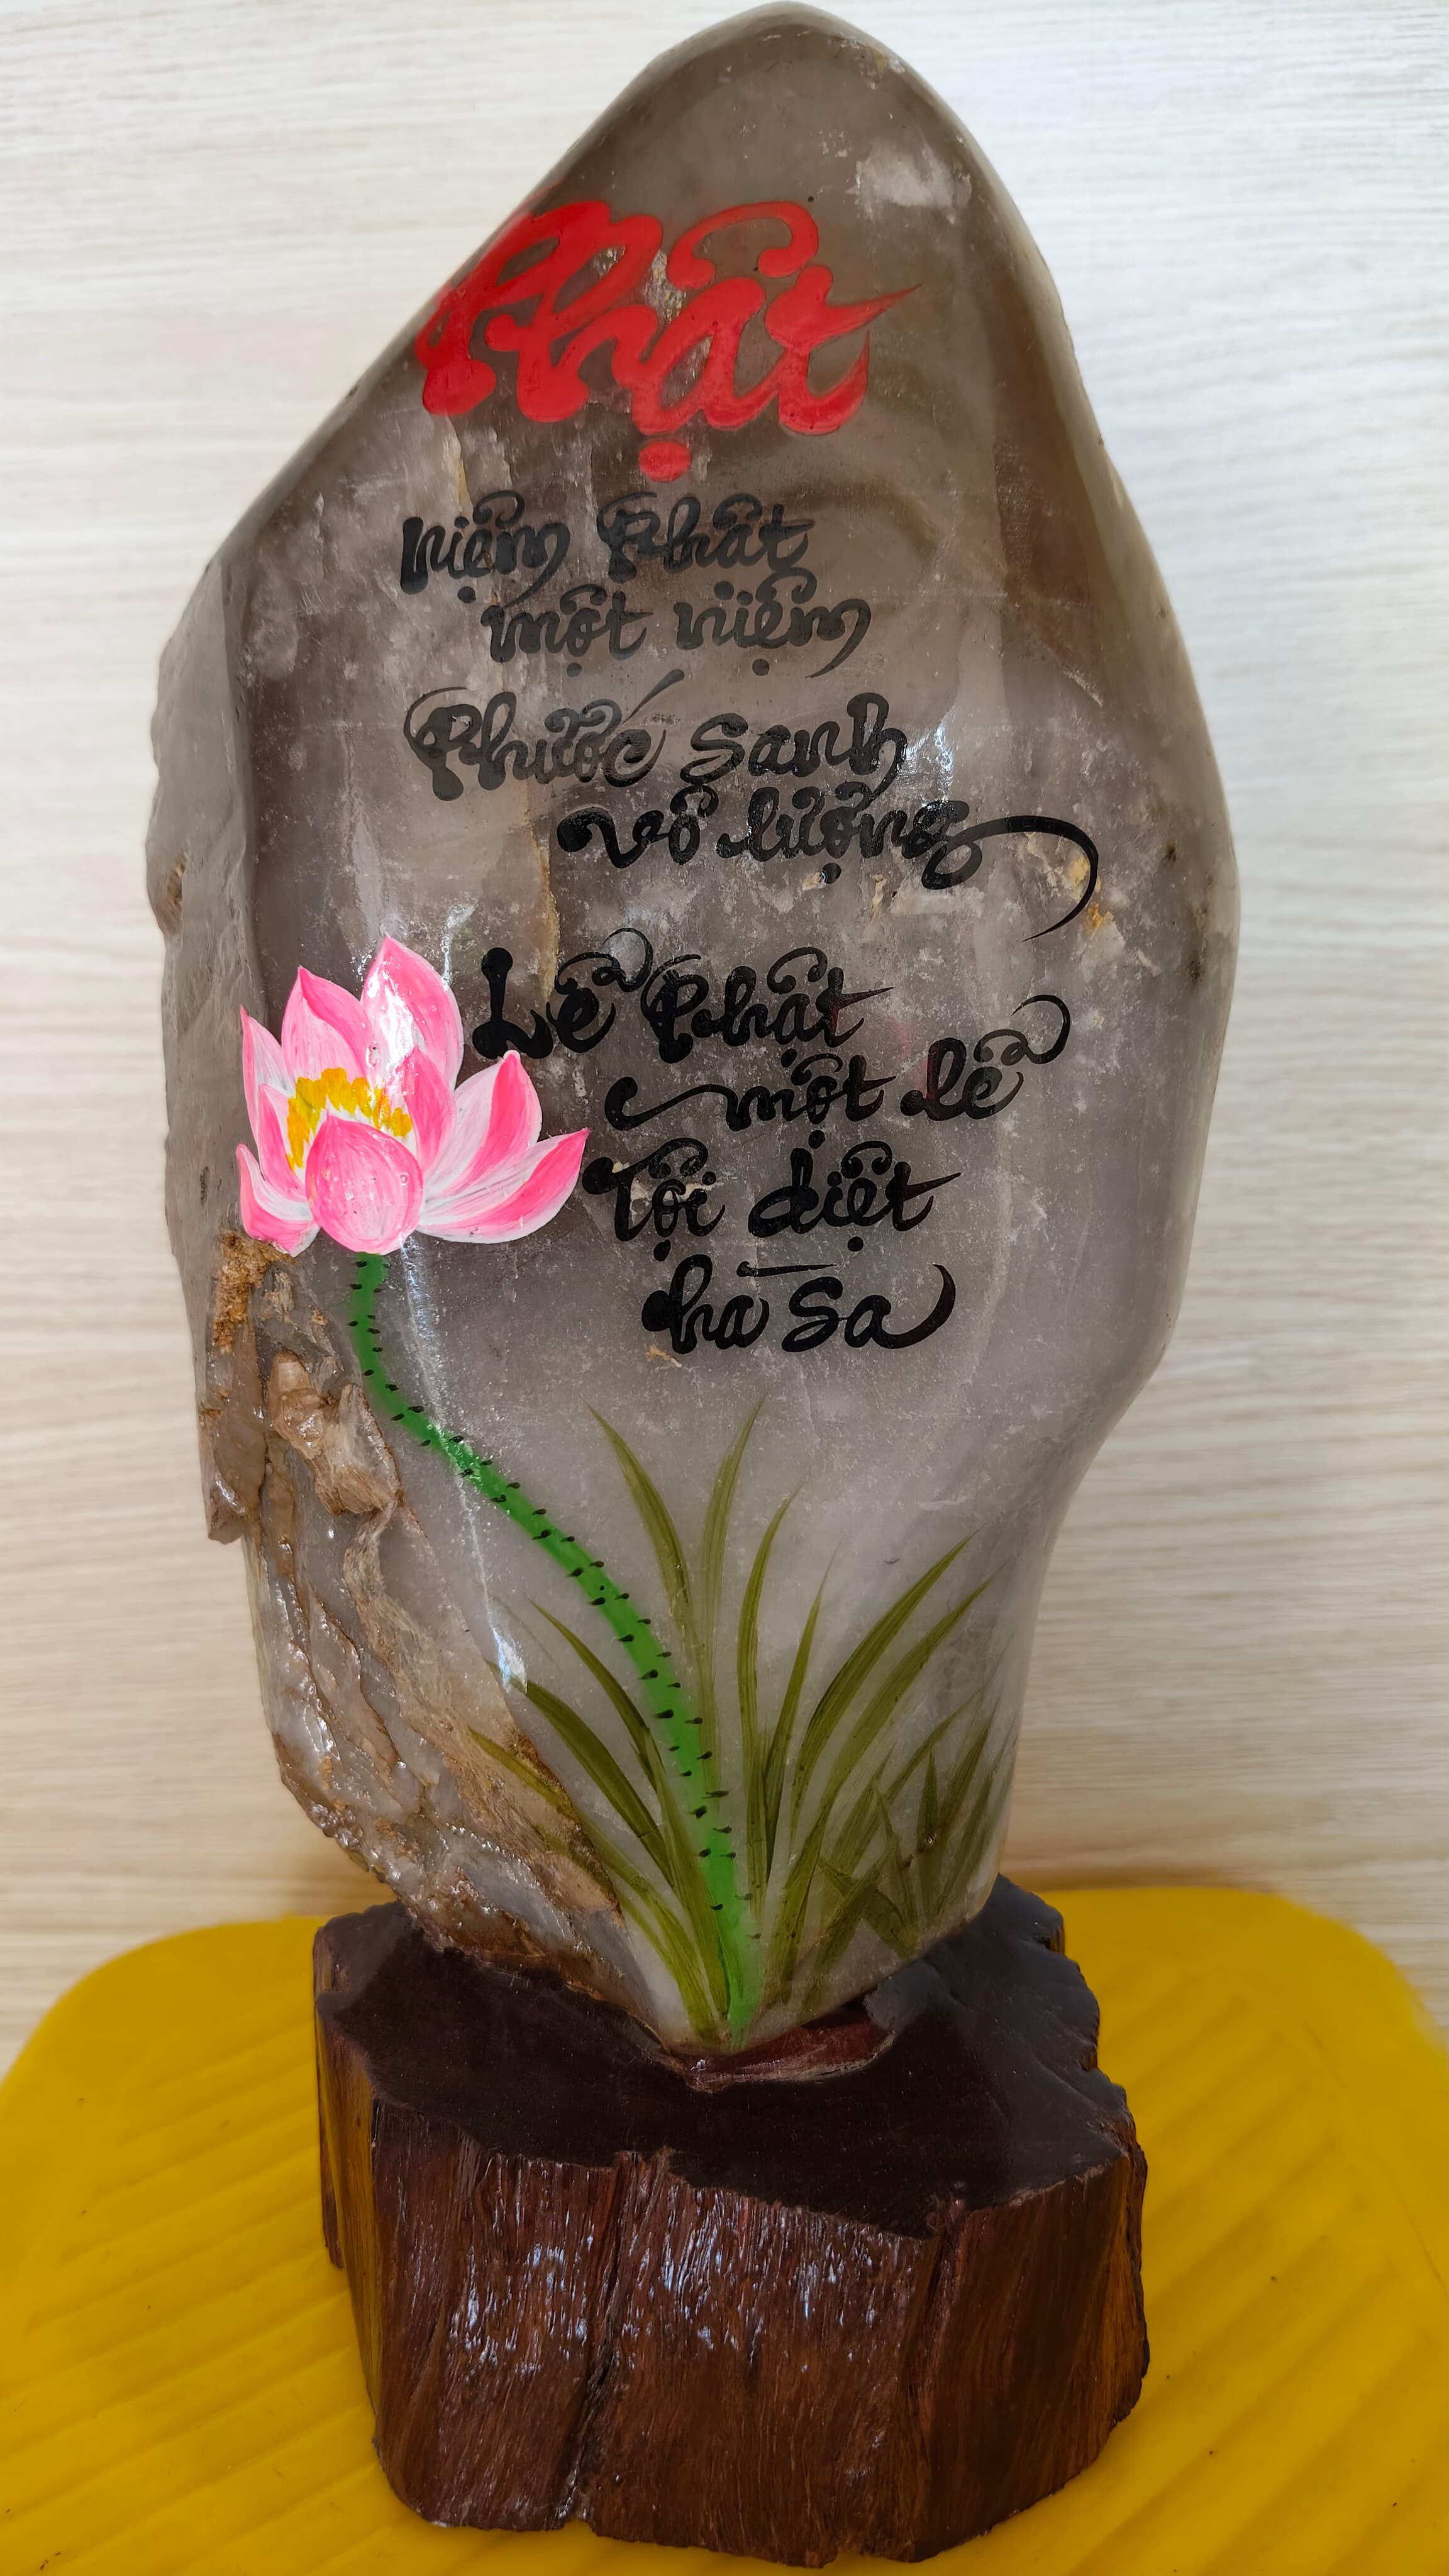 Phật
Niệm Phật
một niệm
Phước sanh
vô lượng
Lễ Phật
một lễ
Tội diệt
hà sa